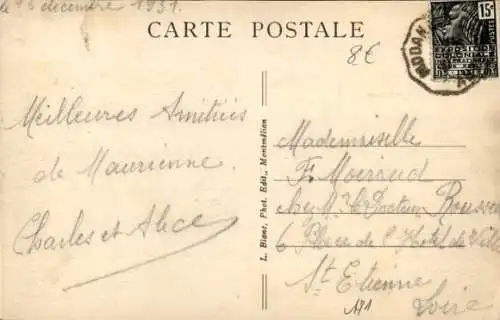 le 16 décembre 1931.
CARTE POSTALE
8€
15c
EXPOSITION
COLONIALE
MODAN
Meilleures Amitiés
de Maurienne.
Charles et Alice
L. Blanc, Phot. Edit., Montmélian
Mademoiselle
F. Moiroud
chez Mr le Docteur
6 Place de l'Hotel de Ville
St Etienne
Loire
171